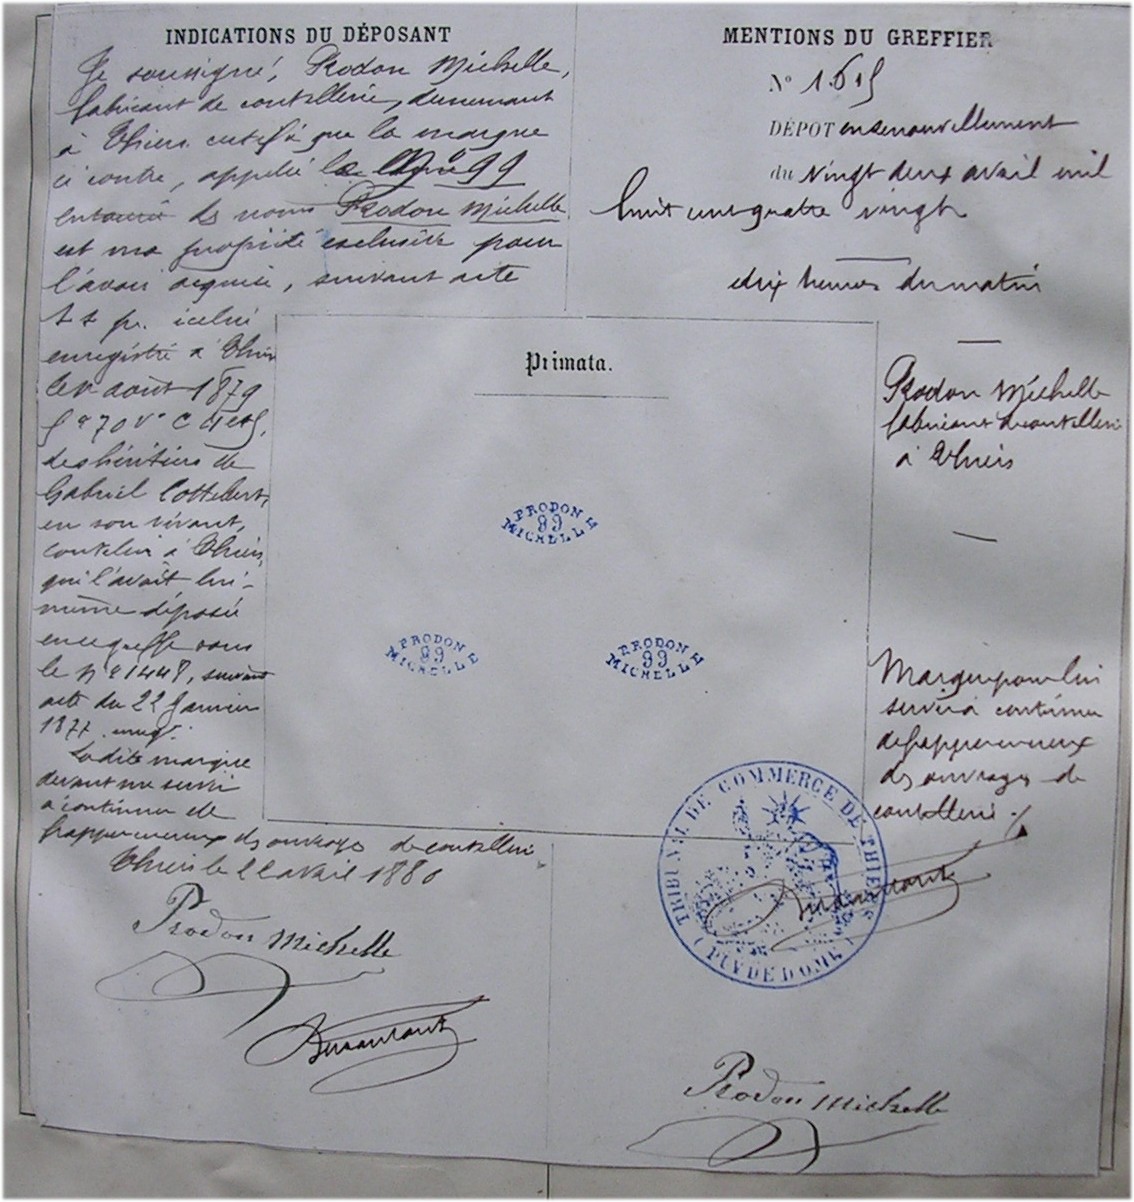 INDICATIONS DU DÉPOSANT
Je soussigné, Prodon Michelle,
fabricant de coutellerie, demeurant
à Thiers certifie que la marque
ci contre, appelée le 99
entourée des noms Prodon Michelle
est ma propriété exclusive pour
l'avoir acquise, suivant acte
s s p. icelui
enregistré à Thiers
le août 1879
f° 70 V° C
des héritiers de
Gabriel
en son vivant,
coutelier à Thiers,
qui l'avait lui-
même déposée
en ce greffe sous
le N° 1448, suivant
acte du 22 Janvier
1877.
La dite marque
devant me servir
à continuer de
frapper ceux des ouvrages de coutellerie
Thiers le 22 avril 1880
Prodon Michelle
MENTIONS DU GREFFIER
N° 1615
DÉPOT en renouvellement
du vingt deux avril mil
huit cent quatre vingt
dix heures du matin
Prodon Michelle
fabricant de coutellerie
à Thiers
Marque pour lui
servir à continuer
de frapper ceux
des ouvrages de
coutellerie.
Primata.
PRODON
99
MICHELLE
PRODON
99
MICHELLE
PRODON
99
MICHELLE
TRIBUNAL DE COMMERCE DE THIERS
(PUY DE DOME)
Prodon Michelle